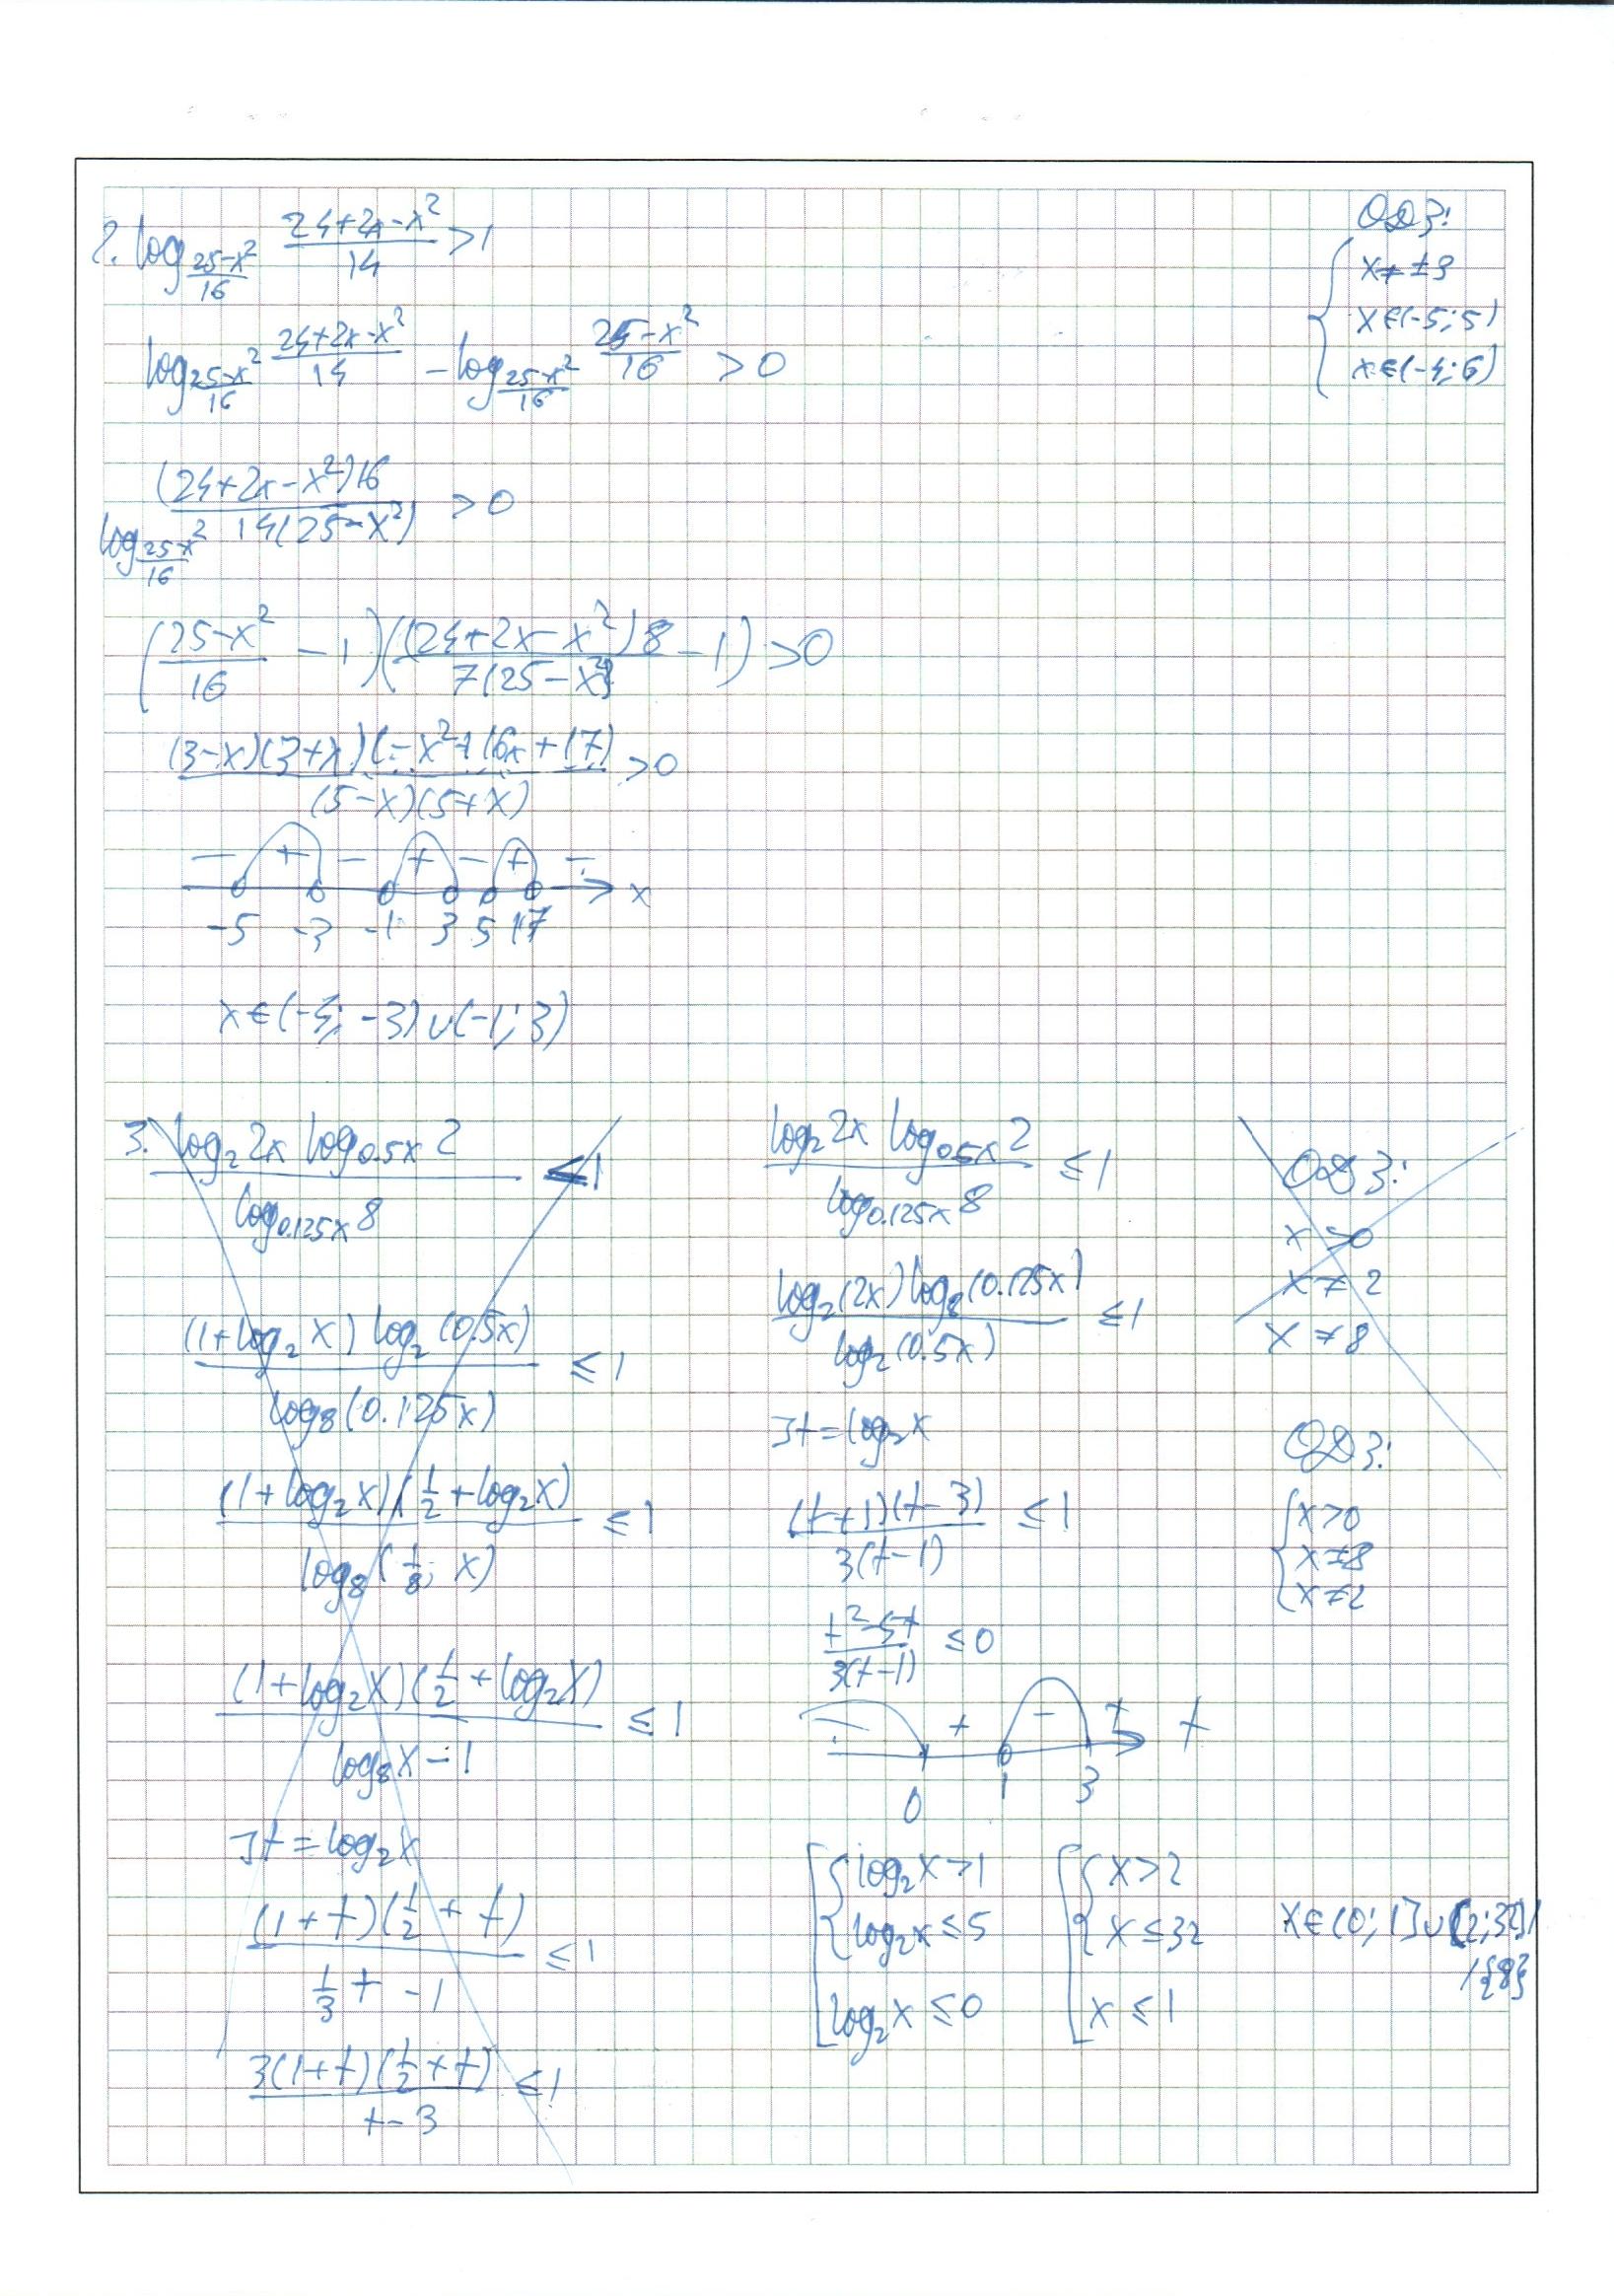 2. log_{(25-x²)/16} (24+2x-x²)/14 > 1
ОДЗ:
{ x ≠ ±3
x ∈ (-5; 5)
x ∈ (-4; 6)
log_{(25-x²)/16} (24+2x-x²)/14 - log_{(25-x²)/16} (25-x²)/16 > 0
log_{(25-x²)/16} (24+2x-x²)16/(14(25-x²)) > 0
((25-x²)/16 - 1)((24+2x-x²)8/(7(25-x²)) - 1) > 0
(3-x)(3+x)(-x²+16x+17)/((5-x)(5+x)) > 0
- + - + - + - x
-5 -3 -1 3 5 17
x ∈ (-4; -3) ∪ (-1; 3)
3. log₂ 2x log_{0.5x} 2 / log_{0.125x} 8 ≤ 1
(1+log₂ x) log₂ (0.5x) / log₈ (0.125x) ≤ 1
(1+log₂ x)(1/2 + log₂ x) / log₈ (1/8 · x) ≤ 1
(1+log₂ x)(1/2 + log₂ x) / (log₈ x - 1) ≤ 1
∃ t = log₂ x
(1+t)(1/2 + t) / (1/3 t - 1) ≤ 1
3(1+t)(1/2 + t) / (t-3) ≤ 1
log₂ 2x log_{0.5x} 2 / log_{0.125x} 8 ≤ 1
log₂ (2x) log₈ (0.125x) / log₂ (0.5x) ≤ 1
∃ t = log₂ x
(t+1)(t-3) / 3(t-1) ≤ 1
(t²-5t) / 3(t-1) ≤ 0
- + - + t
0 1 3
[ { log₂ x > 1
log₂ x ≤ 5
log₂ x ≤ 0
[ { x > 2
x ≤ 32
x ≤ 1
ОДЗ:
x > 0
x ≠ 2
x ≠ 8
ОДЗ:
{ x > 0
x ≠ 8
x ≠ 2
x ∈ (0; 1] ∪ (2; 32] /
/ {8}